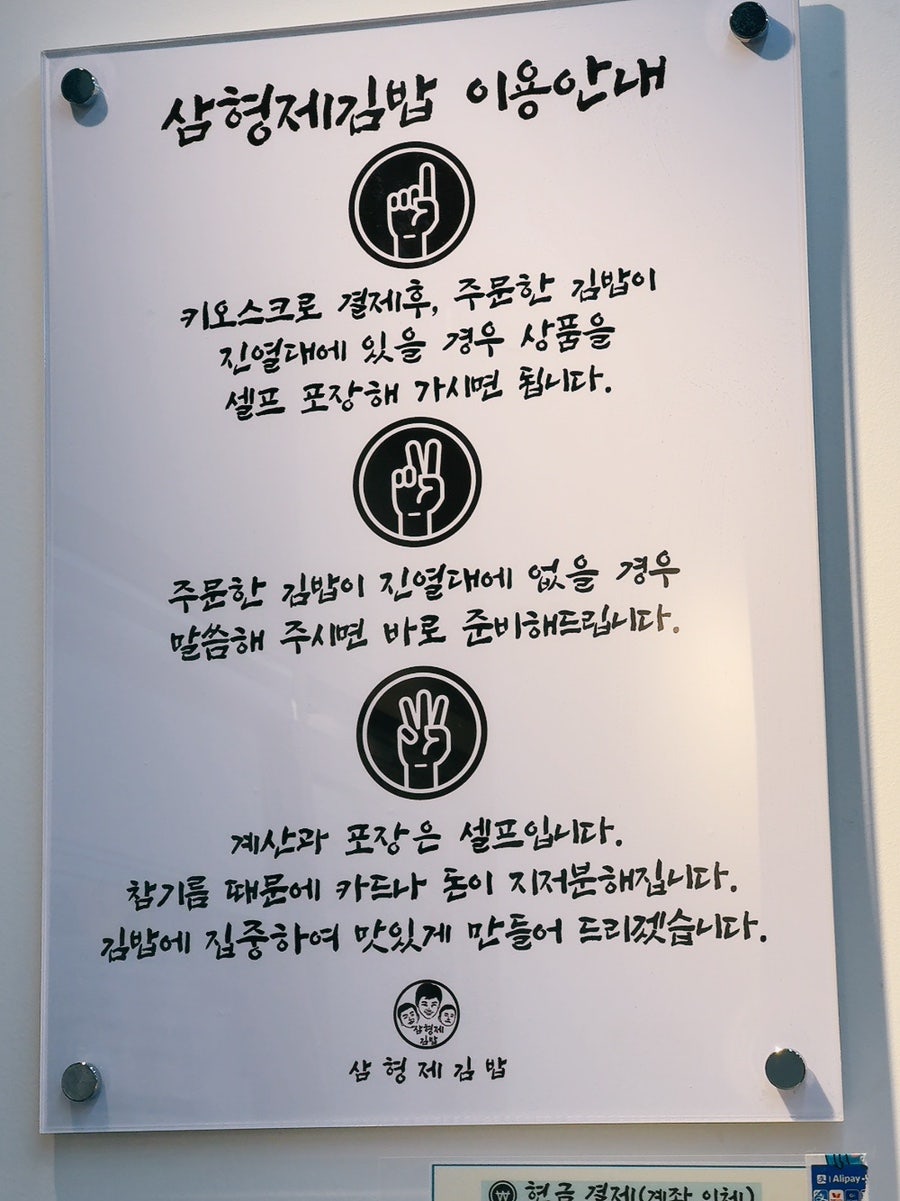 삼형제김밥 이용안내
키오스크로 결제후, 주문한 김밥이
진열대에 있을 경우 상품을
셀프 포장해 가시면 됩니다.
주문한 김밥이 진열대에 없을 경우
말씀해 주시면 바로 준비해드립니다.
계산과 포장은 셀프입니다.
참기름 때문에 카드나 돈이 지저분해집니다.
김밥에 집중하여 맛있게 만들어 드리겠습니다.
삼형제
김밥
삼형제김밥
현금 결제(계좌 이체)
Alipay